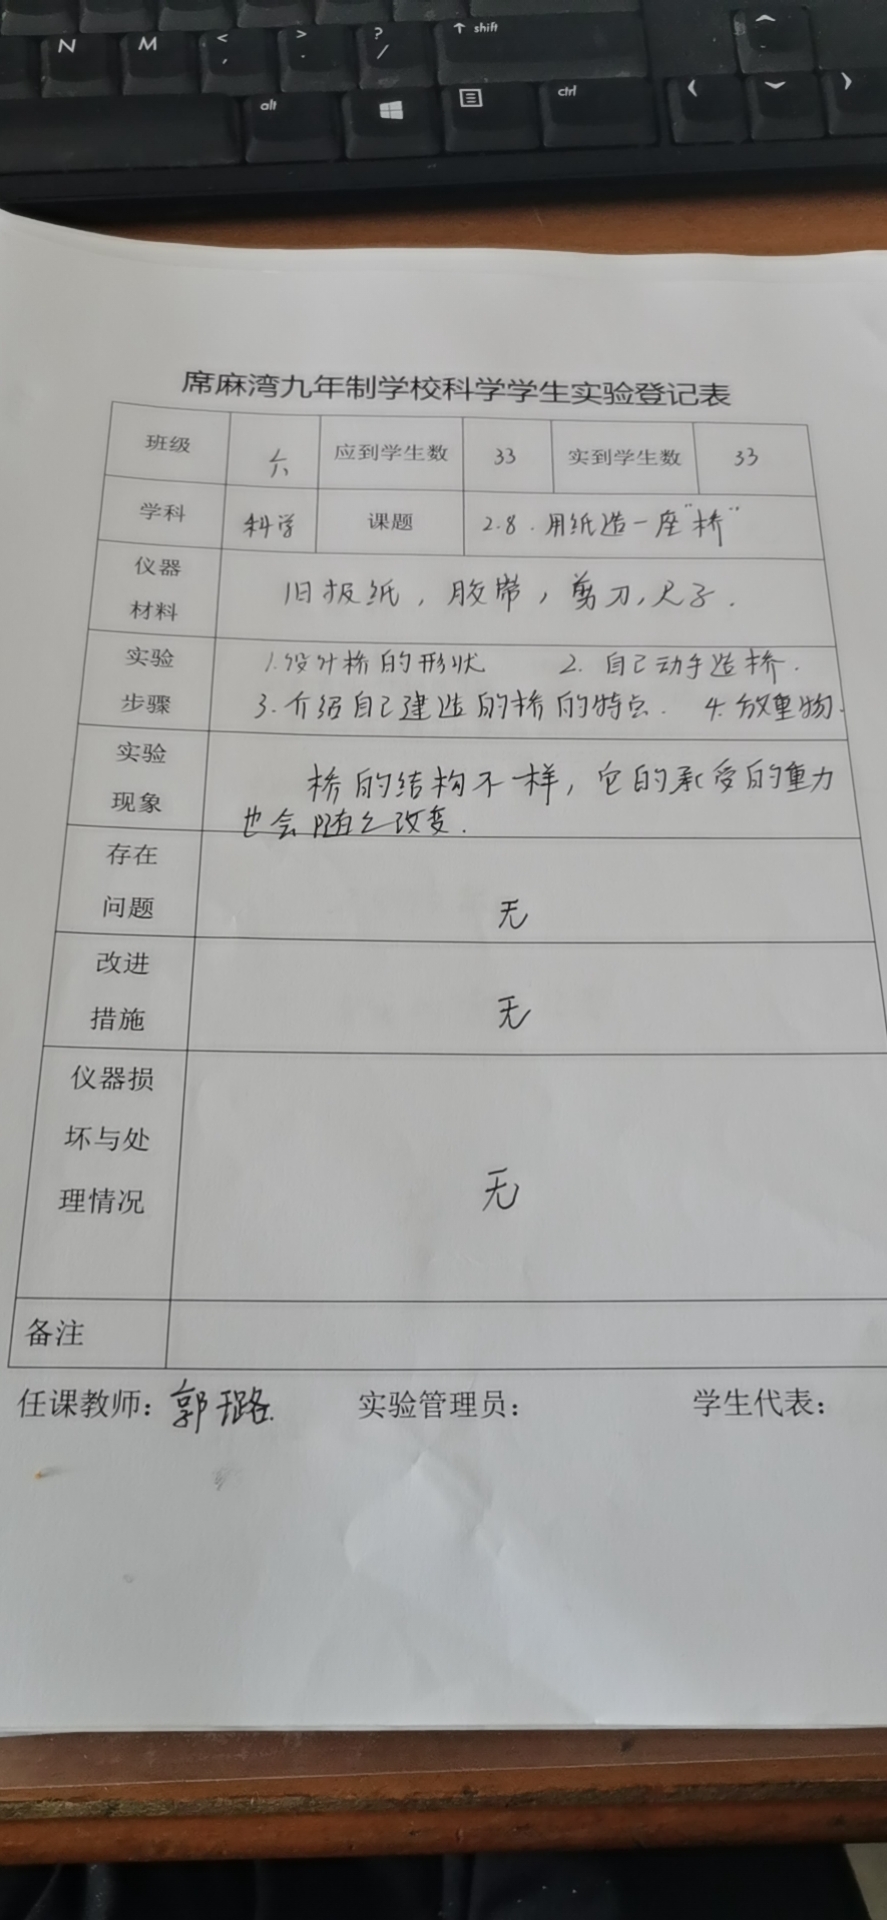 N M < , > . ? / ↑ shift
alt ctrl
席麻湾九年制学校科学学生实验登记表
班级 六 应到学生数 33 实到学生数 33
学科 科学 课题 2.8.用纸造一座"桥"
仪器
材料
旧报纸，胶带，剪刀，尺子.
实验
步骤
1.设计桥的形状 2.自己动手造桥.
3.介绍自己建造的桥的特点. 4.放重物.
实验
现象
桥的结构不一样，它的承受的重力
也会随之改变.
存在
问题
无
改进
措施
无
仪器损
坏与处
理情况
无
备注
任课教师：郭璐 实验管理员： 学生代表：